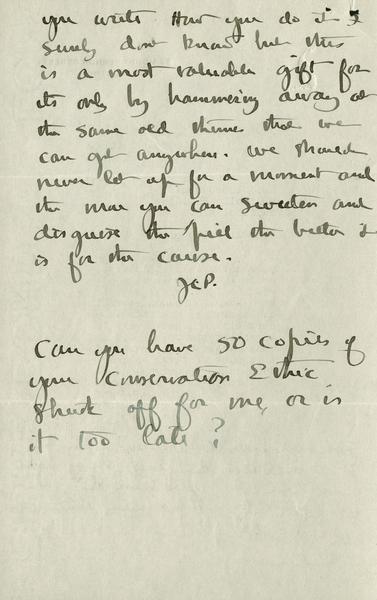 you write How you do it I
surely dont know but this
is a most valuable gift for
its only by hammering away at
the same old theme that we
can get anywhere. We should
never let up for a moment and
the more you can sweeten and
disguise the pill the better it
is for the cause.
JCP.
Can you have 50 copies of
your Conservation Ethic
struck off for me, or is
it too late?